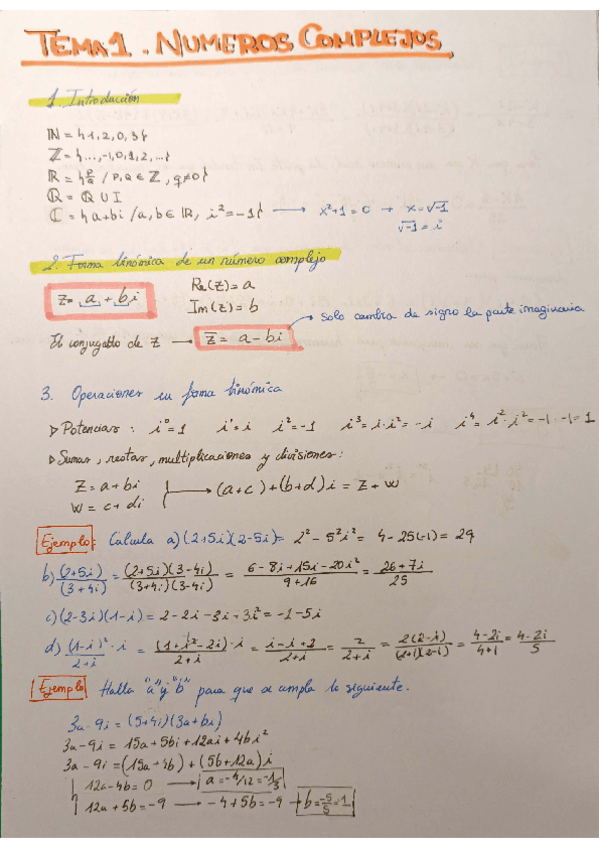 TEMA 1. NUMEROS COMPLEJOS.
1. Introducción
ℕ = {1, 2, 0, 3}
ℤ = {..., -1, 0, 1, 2, ...}
ℝ = {p/q / p, q ∈ ℤ, q≠0}
ℚ = ℚ U I
ℂ = {a+bi / a, b ∈ ℝ, i² = -1} → x²+1 = 0 → x = √-1
√-1 = i
2. Forma binómica de un número complejo
z = a + bi
Re(z) = a
Im(z) = b
solo cambia de signo la parte imaginaria
El conjugado de z → z̅ = a - bi
3. Operaciones en forma binómica
▷ Potencias: i⁰ = 1 i¹ = i i² = -1 i³ = i·i² = -i i⁴ = i²·i² = -1·-1 = 1
▷ Sumas, restas, multiplicaciones y divisiones:
z = a + bi
w = c + di
→ (a+c) + (b+d)i = z + w
Ejemplo: Calcula a) (2+5i)(2-5i) = 2² - 5²i² = 4 - 25(-1) = 29
b) (2+5i)/(3+4i) = (2+5i)(3-4i)/(3+4i)(3-4i) = 6-8i+15i-20i²/9+16 = 26+7i/25
c) (2-3i)(1-i) = 2-2i-3i+3i² = -1-5i
d) (1-i)²·i/2+i = (1+i²-2i)·i/2+i = i-i+2/2+i = 2/2+i = 2(2-i)/(2+i)(2-i) = 4-2i/4+1 = 4-2i/5
Ejemplo Halla "a" y "b" para que se cumpla lo siguiente.
3a-9i = (5+4i)(3a+bi)
3a-9i = 15a+5bi+12ai+4bi²
3a-9i = (15a-4b) + (5b+12a)i
12a-4b = 0 → a = -4/12 = -1/3
12a+5b = -9 → -4+5b = -9 → b = -5/5 = 1